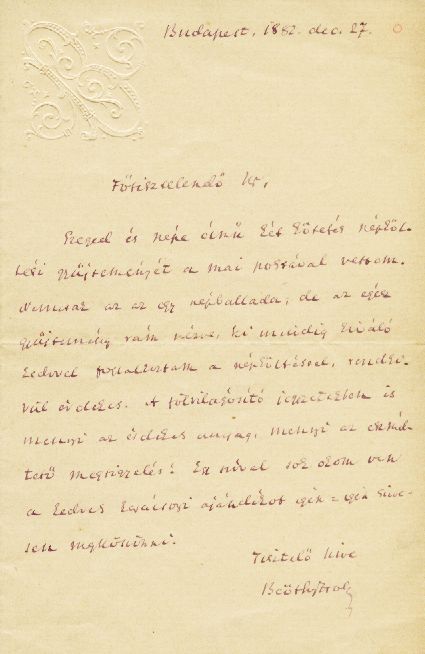 Budapest, 1882. dec. 27.
Főtisztelendő Úr,
Szeged és népe című két kötetes népköl-
tési gyűjteményét a mai postával vettem.
Nemcsak az az egy népballada, de az egész
gyűjtemény rám nézve, ki mindig kiváló
kedvvel foglalkoztam a népköltéssel, rendkí-
vül érdekes. A fölvilágosító jegyzetekben is
mennyi az érdekes anyag, mennyi az
megjegyzés! Egy szóval sok okom van
a kedves karácsonyi ajándékot igen-igen szíve-
sen megköszönni.
Tisztelő híve
Beöthy Zsolt